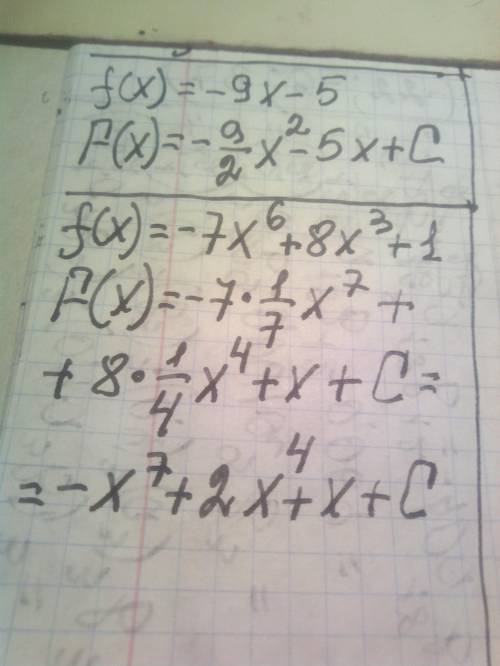 f(x) = -9x - 5
F(x) = -\frac{9}{2}x^2 - 5x + C
f(x) = -7x^6 + 8x^3 + 1
F(x) = -7 · \frac{1}{7}x^7 +
+ 8 · \frac{1}{4}x^4 + x + C =
= -x^7 + 2x^4 + x + C